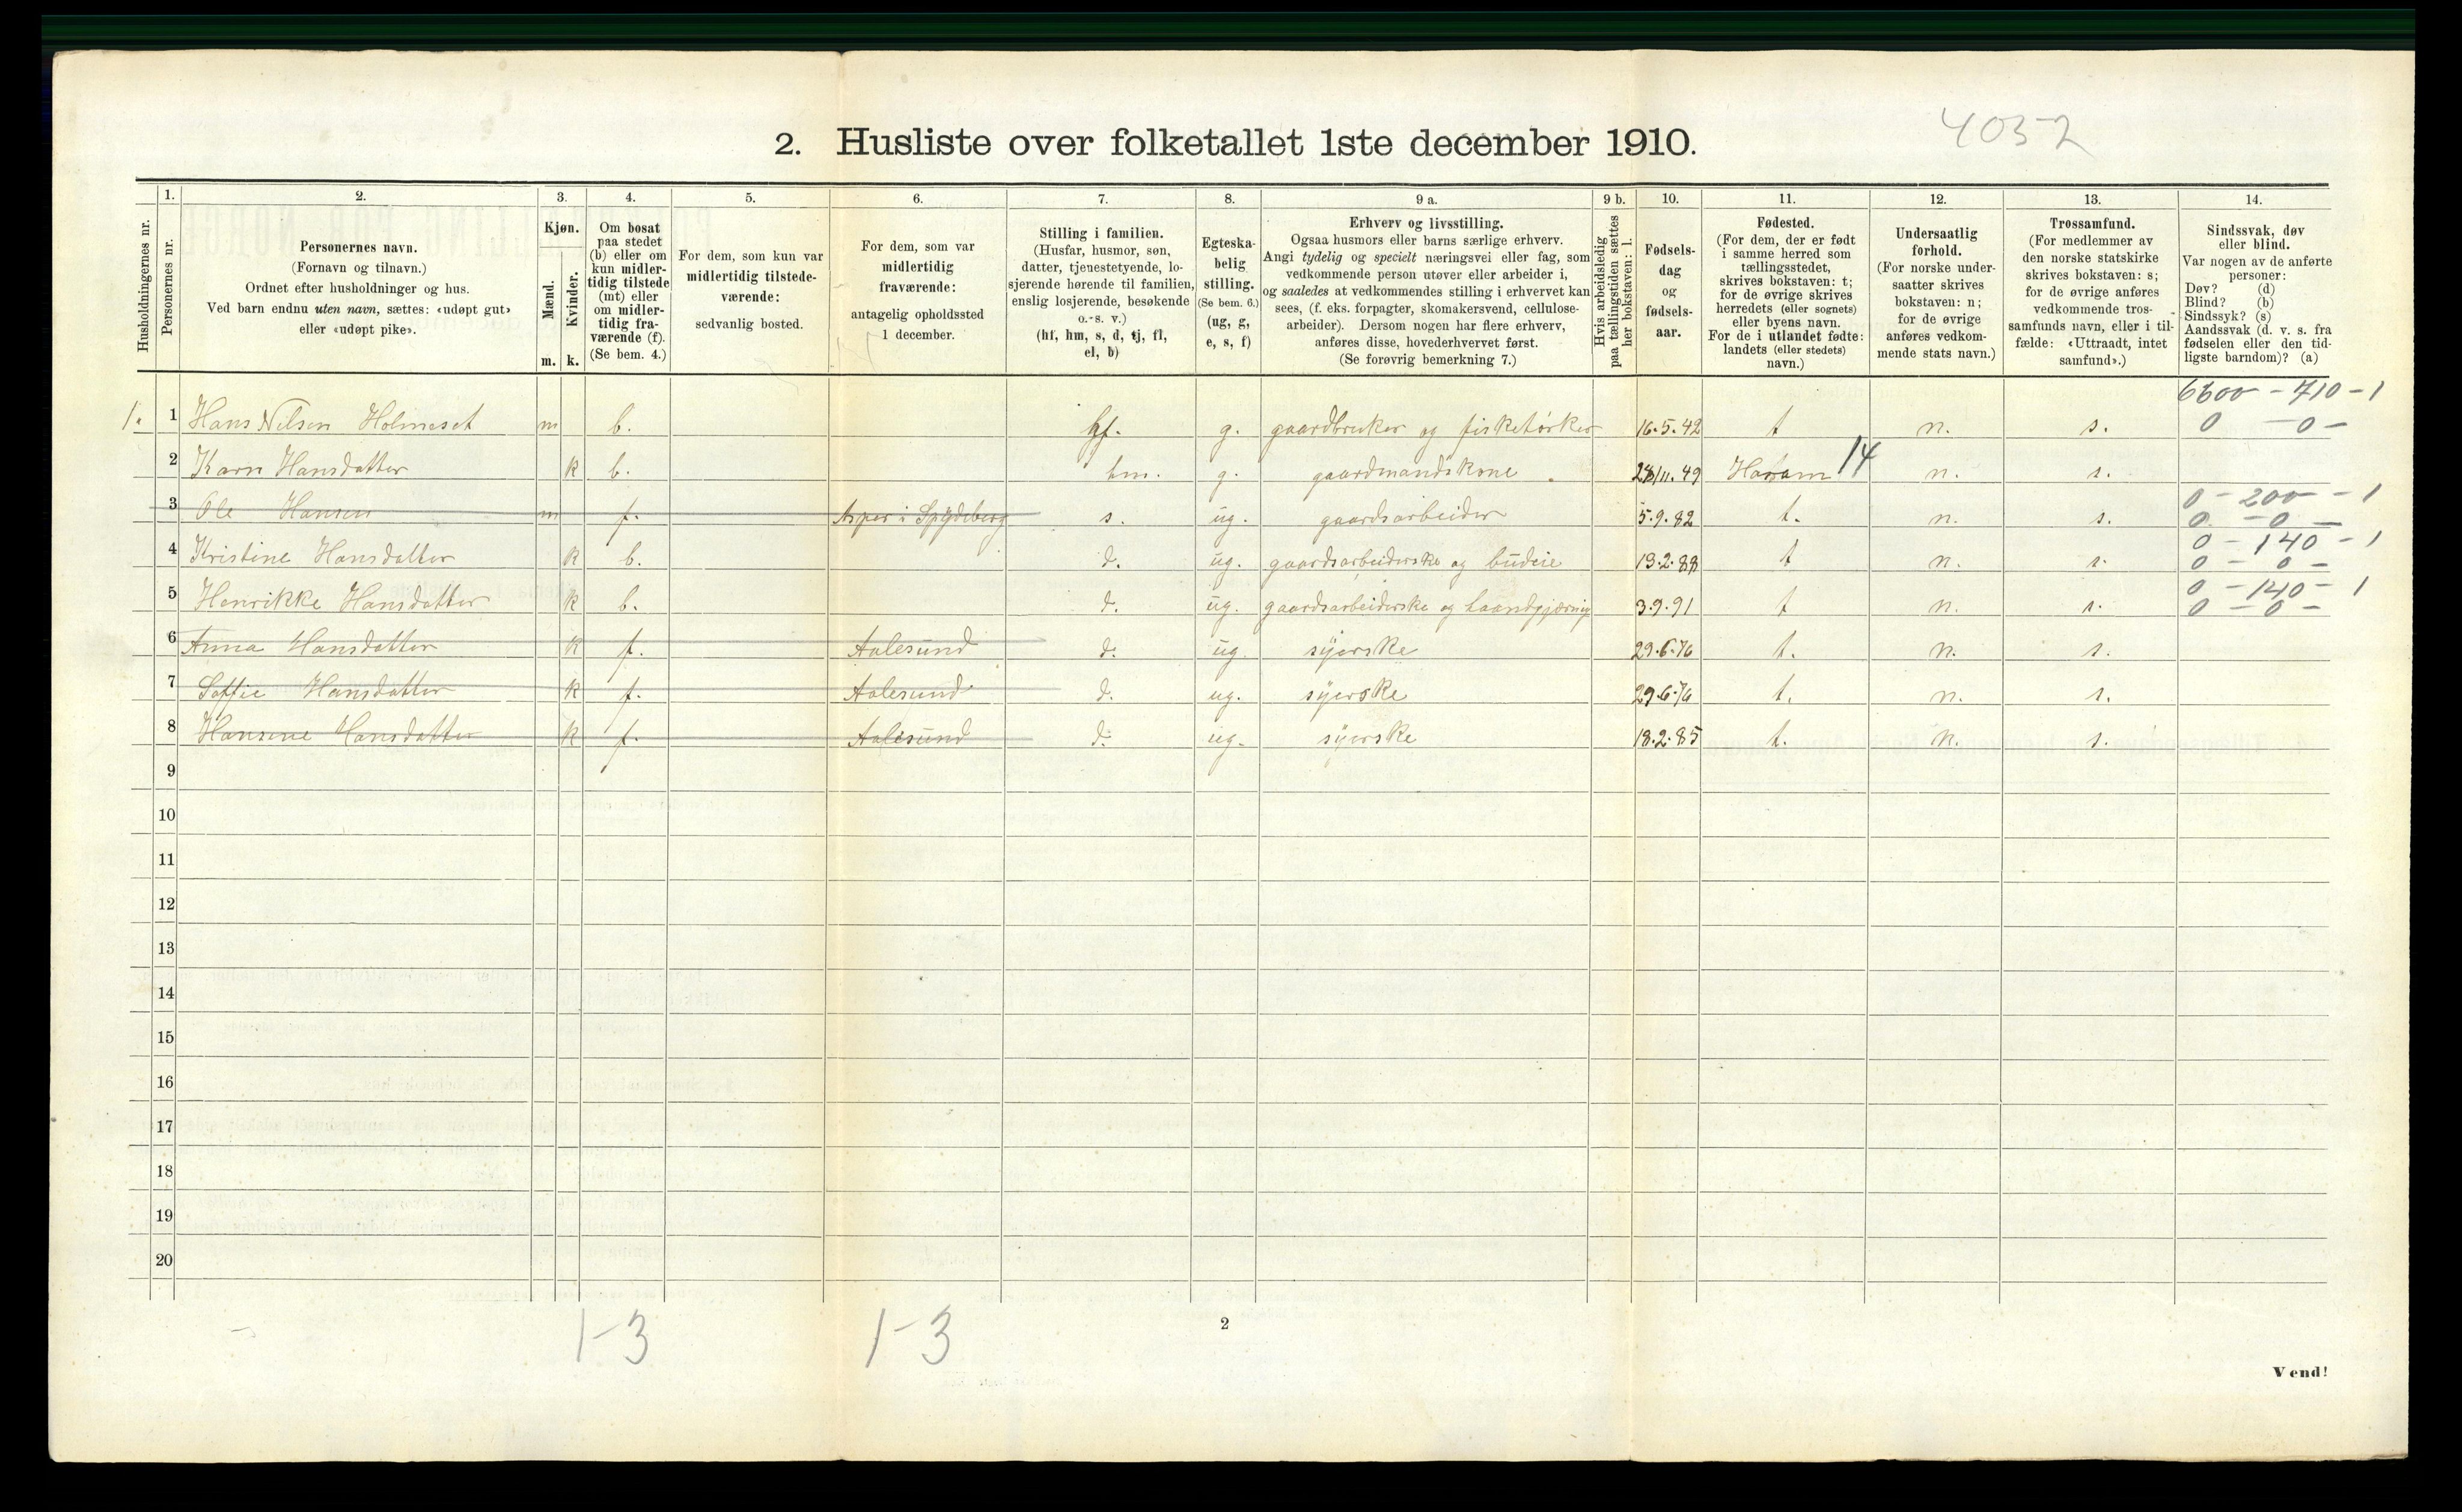 4052
2. Husliste over folketallet 1ste december 1910.
Husholdningernes nr.
1. Personernes nr.
2. Personernes navn. (Fornavn og tilnavn.) Ordnet efter husholdninger og hus. Ved barn endnu uten navn, sættes: «udøpt gut» eller «udøpt pike».
3. Kjøn. Mænd. m. Kvinder. k.
4. Om bosat paa stedet (b) eller om kun midlertidig tilstede (mt) eller om midlertidig fraværende (f). (Se bem. 4.)
5. For dem, som kun var midlertidig tilstedeværende: sedvanlig bosted.
6. For dem, som var midlertidig fraværende: antagelig opholdssted 1 december.
7. Stilling i familien. (Husfar, husmor, søn, datter, tjenestetyende, losjerende hørende til familien, enslig losjerende, besøkende o. s. v.) (hf, hm, s, d, tj, fl, el, b)
8. Egteskabelig stilling. (Se bem. 6.) (ug, g, e, s, f)
9 a. Erhverv og livsstilling. Ogsaa husmors eller barns særlige erhverv. Angi tydelig og specielt næringsvei eller fag, som vedkommende person utøver eller arbeider i, og saaledes at vedkommendes stilling i erhvervet kan sees, (f. eks. forpagter, skomakersvend, cellulosearbeider). Dersom nogen har flere erhverv, anføres disse, hovederhvervet først. (Se forøvrig bemerkning 7.)
9 b. Hvis arbeidsledig paa tællingstiden sættes her bokstaven: l.
10. Fødselsdag og fødselsaar.
11. Fødested. (For dem, der er født i samme herred som tællingsstedet, skrives bokstaven: t; for de øvrige skrives herredets (eller sognets) eller byens navn. For de i utlandet fødte: landets (eller stedets) navn.)
12. Undersaatlig forhold. (For norske undersaatter skrives bokstaven: n; for de øvrige anføres vedkommende stats navn.)
13. Trossamfund. (For medlemmer av den norske statskirke skrives bokstaven: s; for de øvrige anføres vedkommende trossamfunds navn, eller i tilfælde: «Uttraadt, intet samfund».)
14. Sindssvak, døv eller blind. Var nogen av de anførte personer: Døv? (d) Blind? (b) Sindssyk? (s) Aandssvak (d. v. s. fra fødselen eller den tidligste barndom)? (a)
6600 - 710 - 1
1. 1 Hans Nilsen Holmeset m b. hf. g. gaardbruker og fisketørker 16.5.42 t n. s. 0 - 0 -
2 Karn Hansdatter k b. hm. g. gaardmandskone 28/11.49 Haram 14 n. s.
0 - 200 - 1
3 Ole Hansen m f. Asper i Spydeberg s. ug. gaardsarbeider 5.9.82 t. n. s. 0 - 0 -
0 - 140 - 1
4 Kristine Hansdatter k b. d. ug. gaardsarbeiderske og budeie 13.2.88 t n. s. 0 - 0 -
0 - 140 - 1
5 Henrikke Hansdatter k b. d. ug. gaardsarbeiderske og haandgjerning 3.9.91 t n. s. 0 - 0 -
6 Anna Hansdatter k f. Aalesund d. ug. syerske 29.6.76 t. n. s.
7 Soffie Hansdatter k f. Aalesund d. ug. syerske 29.6.76 t. n. s.
8 Hansine Hansdatter k f. Aalesund d. ug. syerske 18.2.85 t. n. s.
9
10
11
12
13
14
15
16
17
18
19
20
1-3 1-3
2
Vend!